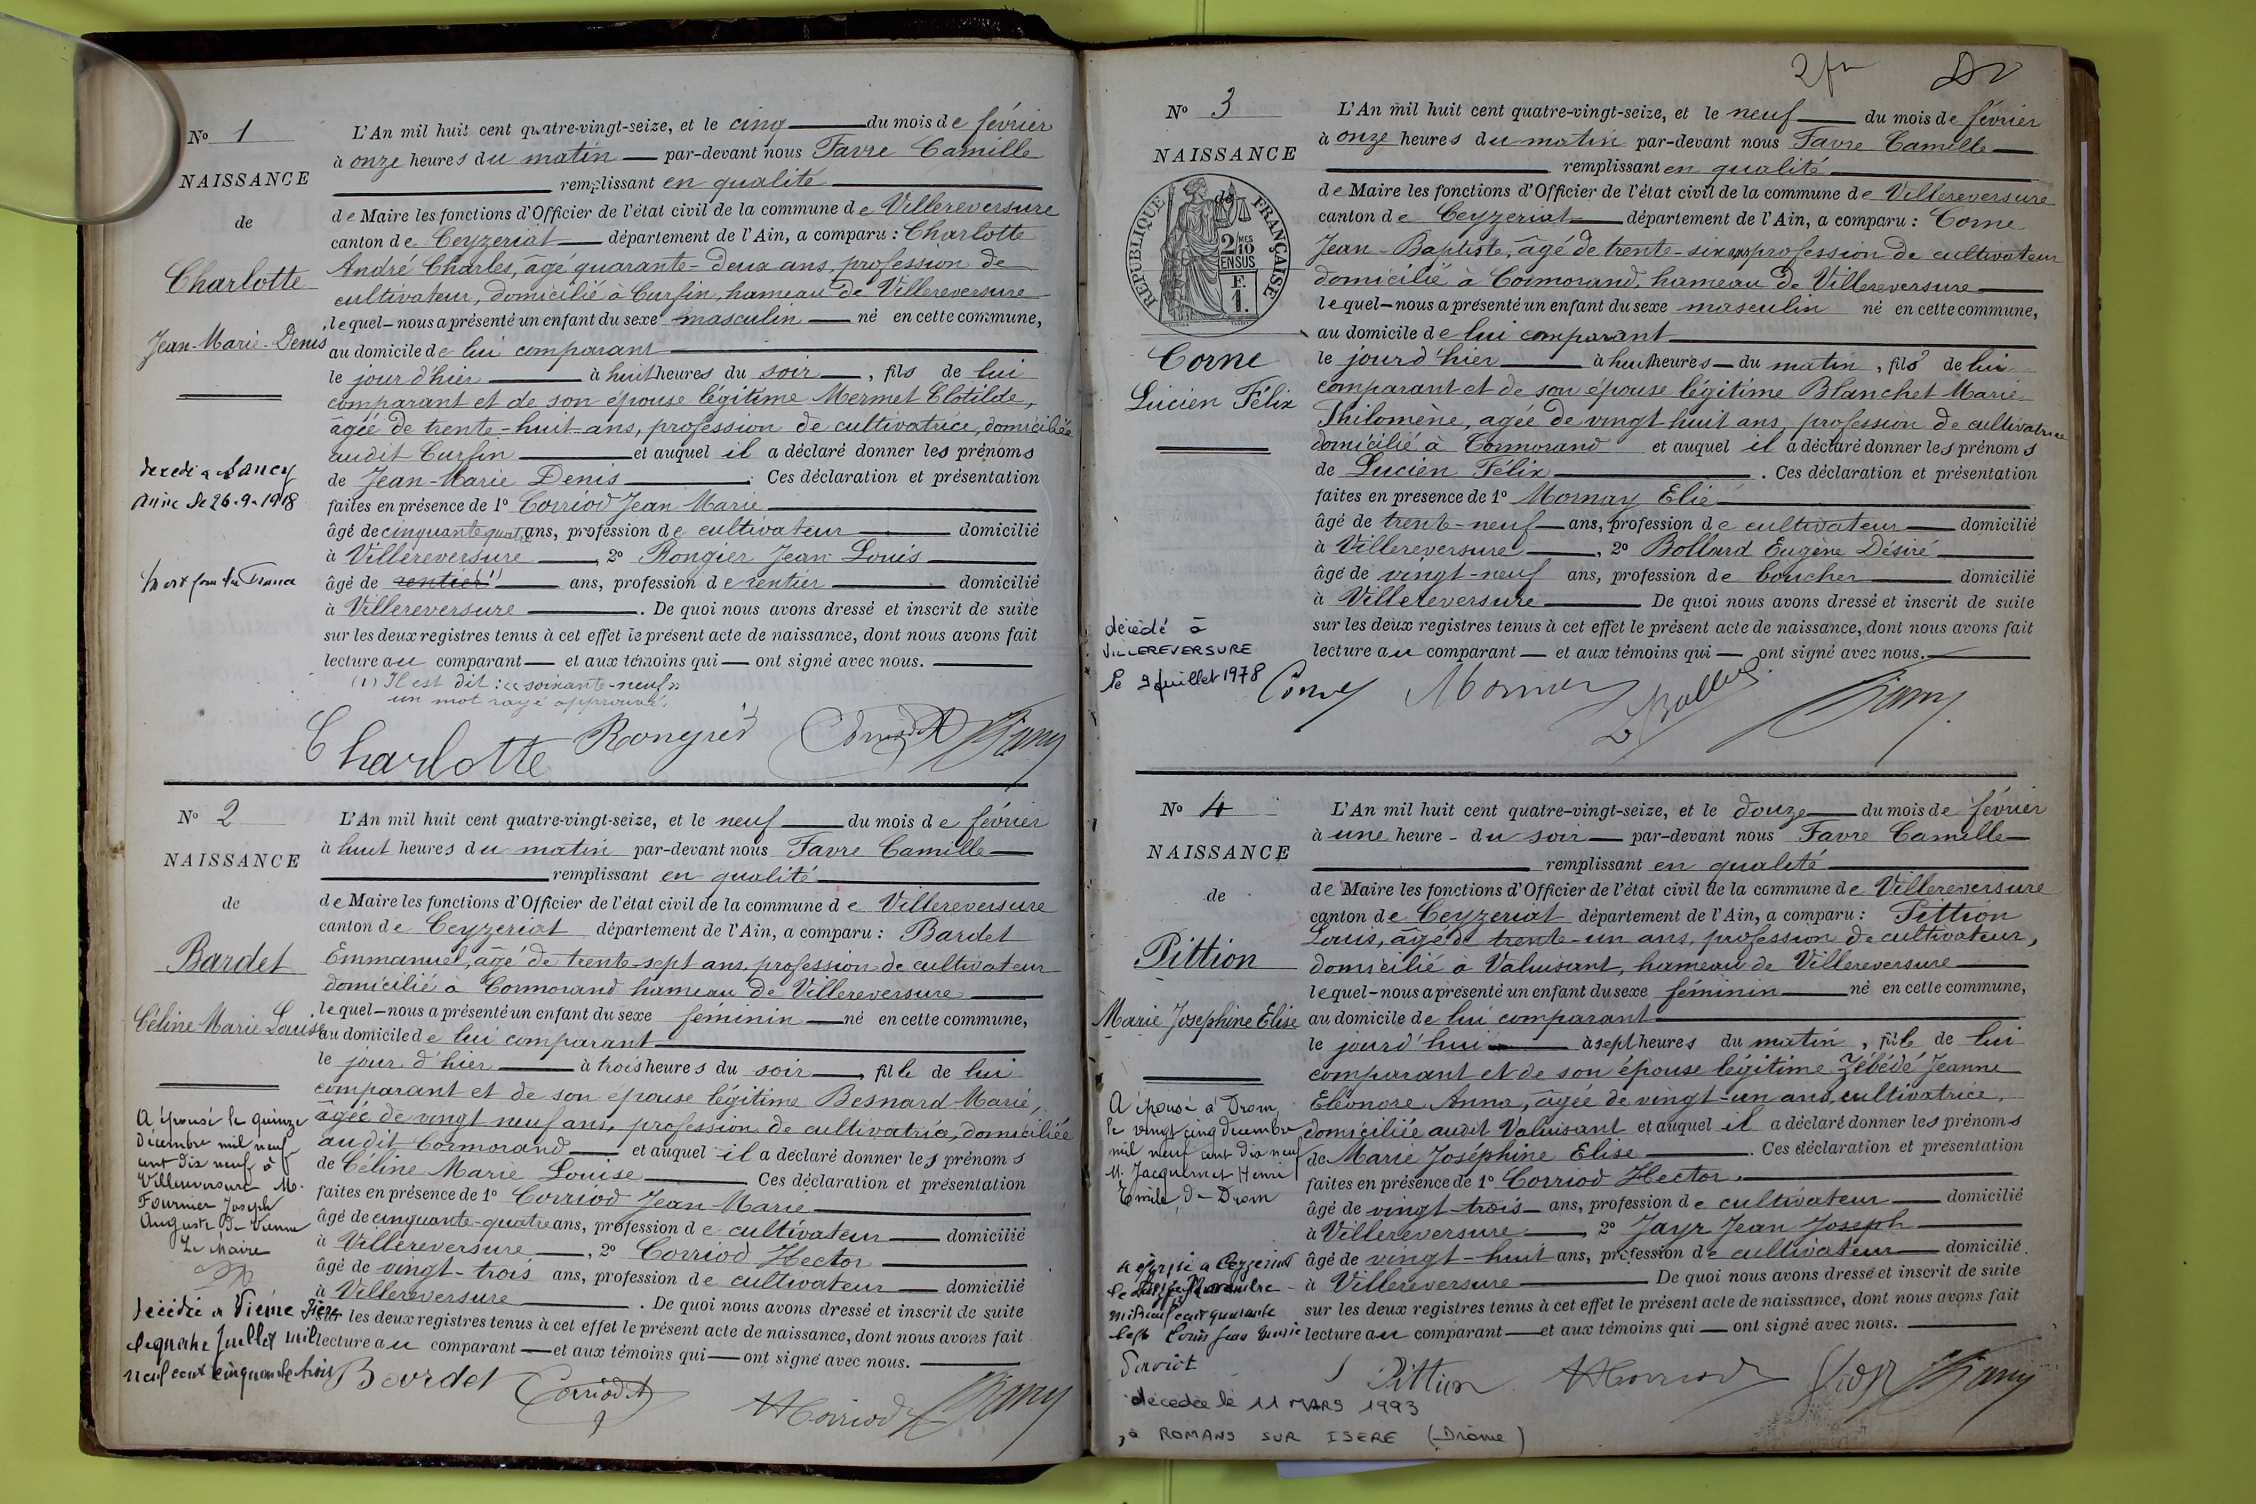 No 1
NAISSANCE
de
Charlotte
Jean-Marie-Denis
décédé à Lancey
Aisne le 26.9.1918
Mort pour la France
L'An mil huit cent quatre-vingt-seize, et le cinq du mois de février
à onze heures du matin par-devant nous Favre Camille
remplissant en qualité
de Maire les fonctions d'Officier de l'état civil de la commune de Villereversure
canton de Ceyzeriat département de l'Ain, a comparu : Charlotte
André Charles, âgé quarante-deux ans, profession de
cultivateur, domicilié à Curfin, hameau de Villereversure
lequel nous a présenté un enfant du sexe masculin né en cette commune,
au domicile de lui comparant
le jour d'hier à huit heures du soir, fils de lui
comparant et de son épouse légitime Mermet Clotilde,
âgée de trente-huit-ans, profession de cultivatrice, domiciliée
audit Curfin et auquel il a déclaré donner les prénoms
de Jean-Marie Denis. Ces déclaration et présentation
faites en présence de 1o Corriod Jean Marie
âgé de cinquante quatre ans, profession de cultivateur domicilié
à Villereversure, 2o Rongier Jean Louis
âgé de rentier (1) ans, profession de rentier domicilié
à Villereversure. De quoi nous avons dressé et inscrit de suite
sur les deux registres tenus à cet effet le présent acte de naissance, dont nous avons fait
lecture au comparant et aux témoins qui ont signé avec nous.
(1) Il est dit : « soixante-neuf »
un mot rayé approuvé.
Charlotte Rongier
No 2
NAISSANCE
de
Bardet
Céline Marie Louise
A épousé le quinze
décembre mil neuf
cent dix neuf à
Villereversure M.
Fournier Joseph
Auguste de Vienne
Le Maire
Décédée à Vienne Isère
le quatre Juillet mil
neuf cent cinquante trois
L'An mil huit cent quatre-vingt-seize, et le neuf du mois de février
à huit heures du matin par-devant nous Favre Camille
remplissant en qualité
de Maire les fonctions d'Officier de l'état civil de la commune de Villereversure
canton de Ceyzeriat département de l'Ain, a comparu : Bardet
Emmanuel, âgé de trente-sept ans, profession de cultivateur
domicilié à Cormorand hameau de Villereversure
lequel nous a présenté un enfant du sexe féminin né en cette commune,
au domicile de lui comparant
le jour d'hier à trois heures du soir, fille de lui
comparant et de son épouse légitime Besnard Marie,
âgée de vingt neuf ans, profession de cultivatrice, domiciliée
audit Cormorand et auquel il a déclaré donner les prénoms
de Céline Marie Louise Ces déclaration et présentation
faites en présence de 1o Corriod Jean Marie
âgé de cinquante-quatre ans, profession de cultivateur domicilié
à Villereversure, 2o Corriod Hector
âgé de vingt-trois ans, profession de cultivateur domicilié
à Villereversure. De quoi nous avons dressé et inscrit de suite
sur les deux registres tenus à cet effet le présent acte de naissance, dont nous avons fait
lecture au comparant et aux témoins qui ont signé avec nous.
Bardet Corriod HCorriod
No 3
NAISSANCE
de
RÉPUBLIQUE FRANÇAISE
2/10 MES
EN SUS
F.
1.
Corne
Lucien Félix
décédé à
VILLEREVERSURE
le 9 juillet 1978
L'An mil huit cent quatre-vingt-seize, et le neuf du mois de février
à onze heures du matin par-devant nous Favre Camille
remplissant en qualité
de Maire les fonctions d'Officier de l'état civil de la commune de Villereversure
canton de Ceyzeriat département de l'Ain, a comparu : Corne
Jean-Baptiste, âgé de trente-six ans profession de cultivateur
domicilié à Cormorand, hameau de Villereversure
lequel nous a présenté un enfant du sexe masculin né en cette commune,
au domicile de lui comparant
le jour d'hier à huit heures du matin, fils de lui
comparant et de son épouse légitime Blanchet Marie
Philomène, agée de vingt-huit ans, profession de cultivatrice
domicilié à Cormorand et auquel il a déclaré donner les prénoms
de Lucien Félix. Ces déclaration et présentation
faites en présence de 1o Mornay Elie
âgé de trente-neuf ans, profession de cultivateur domicilié
à Villereversure, 2o Bollard Eugène Désiré
âgé de vingt-neuf ans, profession de boucher domicilié
à Villereversure De quoi nous avons dressé et inscrit de suite
sur les deux registres tenus à cet effet le présent acte de naissance, dont nous avons fait
lecture au comparant et aux témoins qui ont signé avec nous.
No 4
NAISSANCE
de
Pittion
Marie Joséphine Elise
A épousé à Drom,
le vingt cinq décembre
mil neuf cent dix neuf
M. Jacquemet Henri
Emile, de Drom
mil neuf cent quarante
décédée le 11 MARS 1993
à ROMANS SUR ISERE (Drôme)
L'An mil huit cent quatre-vingt-seize, et le douze du mois de février
à une heure du soir par-devant nous Favre Camille
remplissant en qualité
de Maire les fonctions d'Officier de l'état civil de la commune de Villereversure
canton de Ceyzeriat département de l'Ain, a comparu : Pittion
Louis, âgé de trente-un ans, profession de cultivateur,
domicilié à Valuisant, hameau de Villereversure
lequel nous a présenté un enfant du sexe féminin né en cette commune,
au domicile de lui comparant
le jourd'hui à sept heures du matin, fille de lui
comparant et de son épouse légitime Zébédé Jeanne
Eléonore Anna, âgée de vingt-un ans, cultivatrice,
domiciliée audit Valuisant et auquel il a déclaré donner les prénoms
de Marie Joséphine Elise. Ces déclaration et présentation
faites en présence de 1o Corriod Hector,
âgé de vingt-trois ans, profession de cultivateur domicilié
à Villereversure, 2o Jayr Jean Joseph
âgé de vingt-huit ans, profession de cultivateur domicilié
à Villereversure De quoi nous avons dressé et inscrit de suite
sur les deux registres tenus à cet effet le présent acte de naissance, dont nous avons fait
lecture au comparant et aux témoins qui ont signé avec nous.
Pittion HCorriod